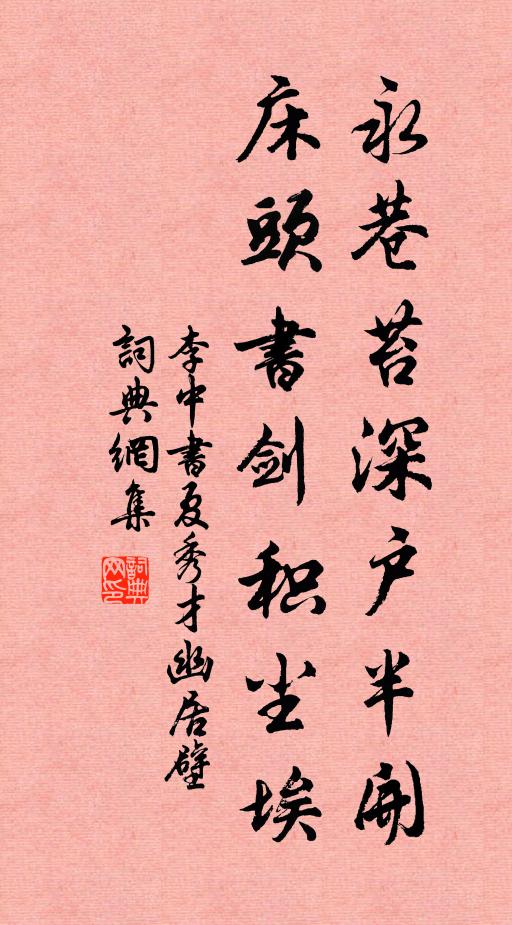 永巷苔深户半開
床頭書劍积尘埃
李中書夏秀才幽居壁
詞典網集
詞典网印